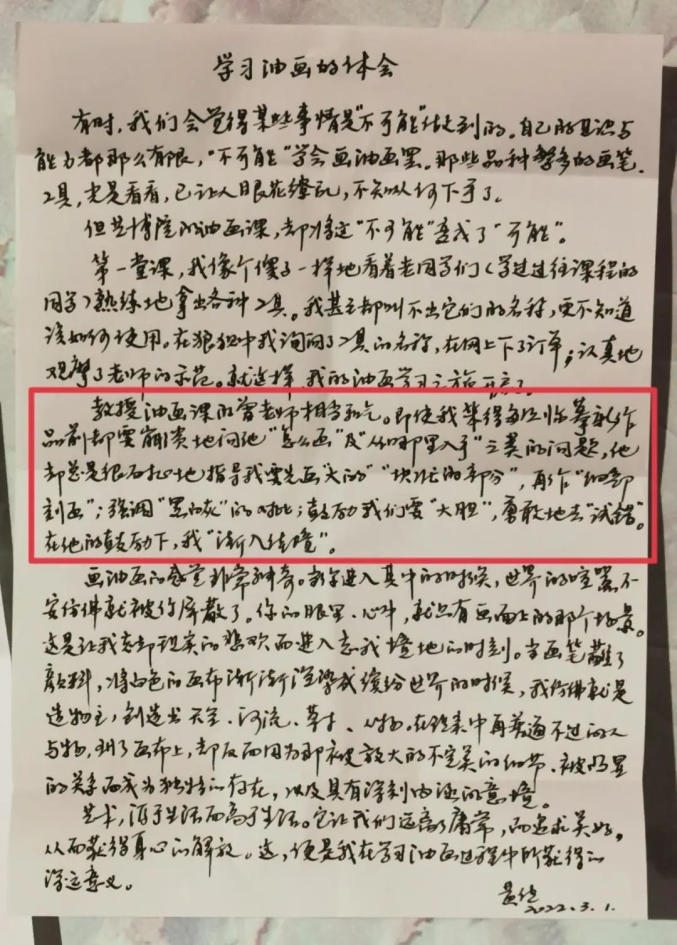 学习油画的体会
有时，我们会觉得某些事情是“不可能”达到的。自己的见识与
能力都那么有限，“不可能”学会画油画罢。那些品种繁多的画笔、
工具，光是看看，已让人眼花缭乱，不知从何下手了。
但艺博院的油画课，却将这“不可能”变成了“可能”。
第一堂课，我像个傻子一样地看着老同学们（学过过往课程的
同学）熟练地拿出各种工具。我甚至都叫不出它们的名称，更不知道
该如何使用。在狼狈中我询问了工具的名称，在网上下了订单；认真地
观摩了老师的示范。就这样，我的油画学习之旅开启了。
教授油画课的曾老师相当和气。即使我笨得每次临摹新作
品前都要崩溃地问他“怎么画”及“从哪里入手”之类的问题，他
却总是很耐心地指导我要先画“大的”“块状的部分”，再作“细部
刻画”；强调“黑白灰”的对比；鼓励我们要“大胆”，勇敢地去“试错”。
在他的鼓励下，我“渐入佳境”。
画油画的感觉非常神奇。当你进入其中的时候，世界的喧嚣不
安仿佛就被你屏散了。你的眼里、心中，就只有画面上的那个场景。
这是让我忘却现实的悲欢而进入忘我境地的时刻。当画笔蘸了
颜料，将白色的画布渐渐渲染成缤纷世界的时候，我仿佛就是
造物主，创造出天空、河流、草木、人物。在现实中再普通不过的人
与物，到了画布上，却反而因为那被放大的不完美的细节、被明显
的关系而成为独特的存在，以及具有深刻内涵的意境。
艺术，源于生活而高于生活。它让我们远离了庸常，而追求美好，
从而获得身心的解放。这，便是我在学习油画过程中所获得的
深远意义。
2022.3.1.